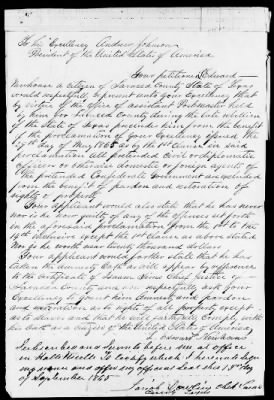 To his Excellency Andrew Johnson
President of the United States of America
Your petitioner Edward
a citizen of County State of Texas
would respectfully represent unto your Excellency that
by virtue of the office of assistant Postmaster held
by him for County during the late rebellion
of the State of Texas precludes him from the benefit
of the proclamation of your Excellency issued the
29th day of May 1865 as by the 1st clause in said
proclamation all pretended civil or diplomatic
officers or otherwise domestic or foreign agents of
the pretended Confederate Government are excluded
from the benefit of pardon and restoration of
rights of property
Your applicant would also state that he has never
nor is he now guilty of any of the offences set forth
in the aforesaid proclamation from the 1st to the
14th inclusive except the 1st clause as above stated
Nor is he worth over twenty thousand dollars
Your applicant would further state that he has
taken the Amnesty Oath as will appear by reference
to the certificate of Chief Justice of
County and now respectfully ask your
Excellency to grant him Amnesty and pardon
and restoration as to rights of all property except
as to slaves and that he will entirely comply with
his oath as a citizen of the United States of America
Edward
Subscribed and Sworn to before me at office
in To certify which I hereunto
sign my name and affix my official seal this 18th day
of September 1865